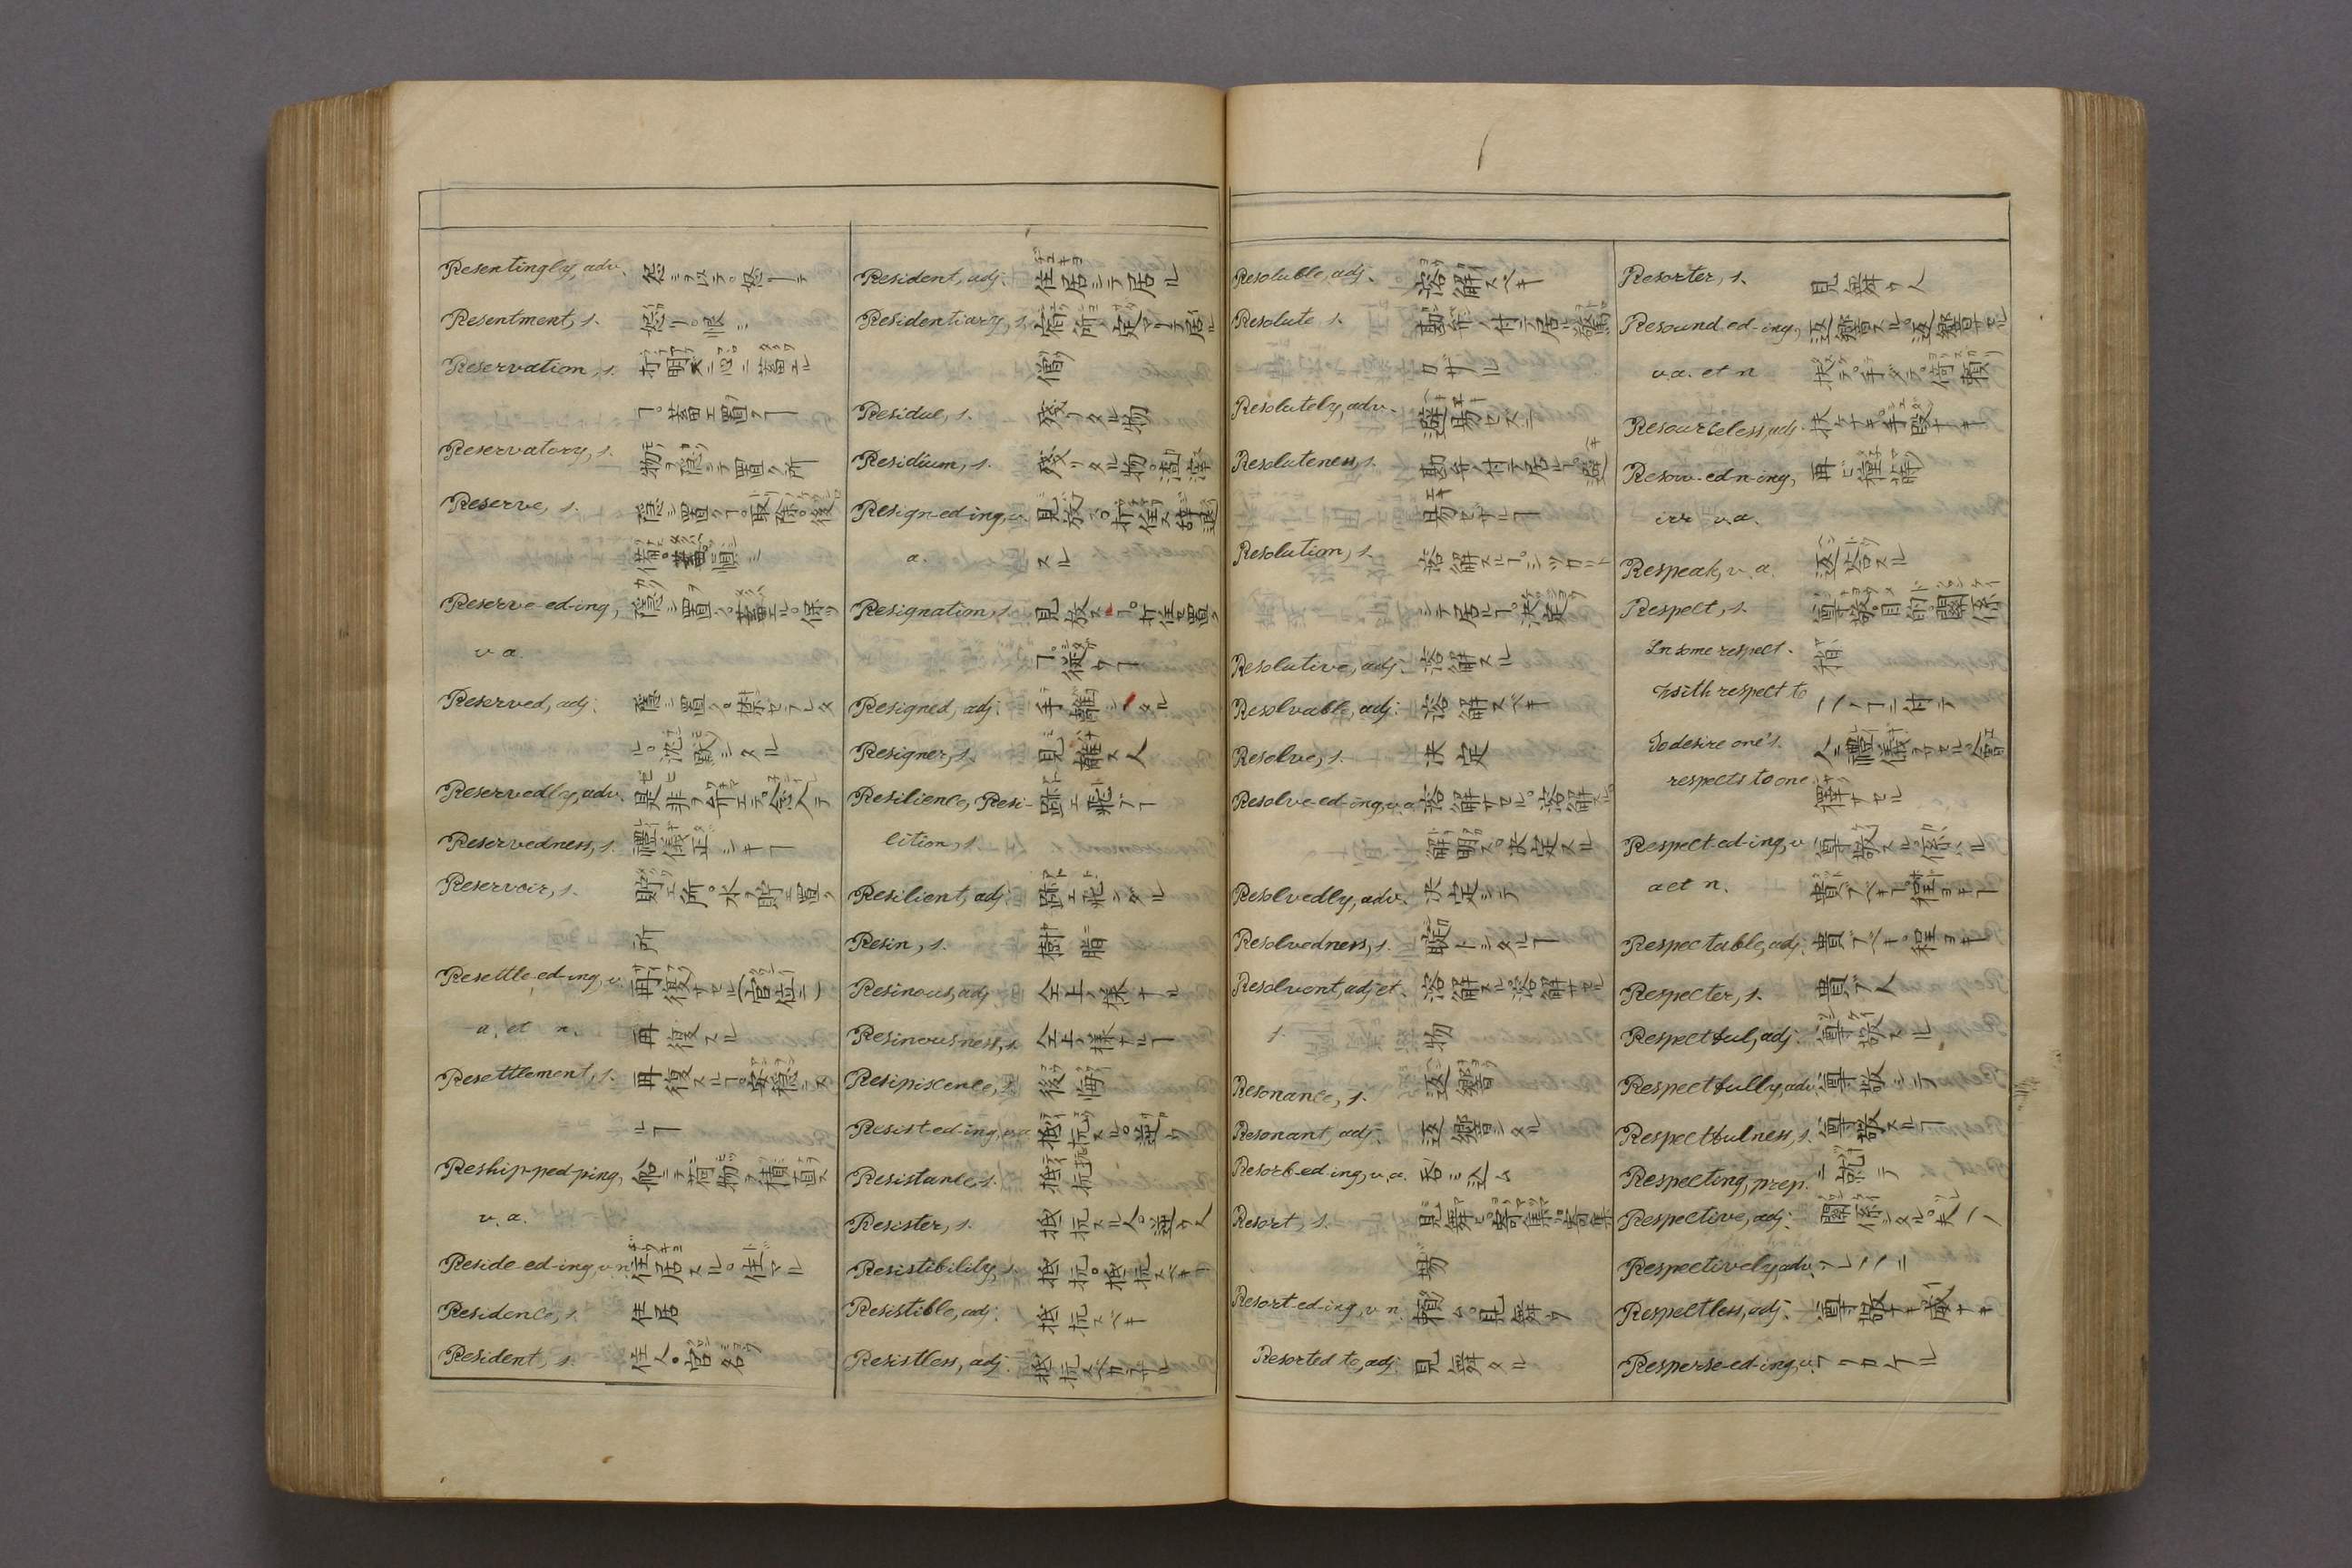 Resentingly, adv. 怒ヲ以テ。怒ーテ
Resentment, s. 怒リ。恨ミ
Reservation, s. 打明ズ心ニ蓄エル
ヿ。蓄エ置クヿ
Reservatory, s. 物ヲ隠シテ置ク所
Reserve, s. 隠シ置クヿ。取除。後
備。蓄。慎ミ
Reserve-ed-ing, 隠シ置ク。蓄エル。保ツ
v a.
Reserved, adj. 隠シ置ク。禁ゼラレタ
ル。沈黙シタル
Reservedly, adv. 是非ヲ弁エテ。念入テ
Reservedness, s. 禮儀正シキヿ
Reservoir, s. 貯エ所。水ヲ貯エ置ク
所
Resettle-ed-ing, v. 再復サセル(官位ニ)
a. et n. 再復スル
Resettlement, s. 再復スルヿ。安穏ニス
ルヿ
Reship-ped-ping, 船ニテ荷物ヲ積直ス
v. a.
Reside-ed-ing, v n. 住居スル。住マル
Residence, s. 住居
Resident, s. 住人。官名
Resident, adj. 住居シテ居ル
Residentiary, s. 宿所ヲ定マリ居ル
僧
Residue, s. 残リタル物
Residium, s. 残リタル物。渣滓
Resign-ed-ing, v. 見放ス。打任ス。辞退
a. スル
Resignation, s. 見放スヿ。打任セ置ク
ヿ。従ウヿ
Resigned, adj. 手離シタル
Resigner, s. 見離ス人
Resilience, Resi- 跡エ飛ブヿ
lition, s.
Resilient, adj. 跡エ飛ンダル
Resin, s. 樹脂
Resinous, adj. 仝上ノ様ナル
Resinousness, s. 仝上ノ様ナルヿ
Resipiscence, s. 後悔
Resist-ed-ing, v a. 抵抗スル。逆ウ
Resistance, s. 抵抗
Resister, s. 抵抗スル人。逆ウ人
Resistibility, s. 抵抗。抵抗スベキヿ
Resistible, adj. 抵抗スベキ
Resistless, adj. 抵抗スベカラザル
Resoluble, adj. 溶解スベキ
Resolute, s. 動ゼズ落付テ居ル。驚
カザル
Resolutely, adv. 邊易セズニ
Resoluteness, s. 落付テ居ルヿ。邊
易セザルヿ
Resolution, s. 溶解スルヿ。シツカリト
シテ居ルヿ。決定
Resolutive, adj. 溶解スル
Resolvable, adj. 溶解スベキ
Resolve, s. 決定
Resolve-ed-ing, v a. 溶解サセル。溶解スル。
解明ス。決定スル
Resolvedly, adv. 決定シテ
Resolvedness, s. 聢トシタルヿ
Resolvent, adj. et. 溶解スル。溶解サセル
s. 物
Resonance, s. 返響
Resonant, adj. 返響シタル
Resorb-ed-ing, v. a. 呑ミ込ム
Resort, s. 見舞ヒ。寄集。寄集
勢
Resort-ed-ing, v n. 頼ム。見舞ウ
Resorted to, adj. 見舞タル
Resorter, s. 見舞ウ人
Resound-ed-ing, 返響スル。返響サセル
v a. et n
扶ケ。手ダテ。倚頼
Resourceless, adj. 扶ケナキ。手段ナキ
Resow-ed-n-ing, 再ビ種蒔
irr v. a.
Respeak, v. a. 返答スル
Respect, s. 尊敬。目的。關係
In some respect. 稍
With respect to 一ノヿニ付テ
To desire one's. 人ニ禮儀ヲサセル。會
respects to one 釋サセル
Respect-ed-ing, v 尊敬スル。係ハル
a et n. 貴ブベキヿ。程ヨキヿ
Respectable, adj. 貴ブベキ。程ヨキ
Respecter, s. 貴ブ人
Respectful, adj. 尊敬スル
Respectfully, adv. 尊敬シテ
Respectfulness, s. 尊敬スルヿ
Respecting, prep. ニ就テ
Respective, adj. 關係シタル。夫々ノ
Respectively, adv. ソレゾレニ
Respectless, adj. 尊敬ナキ。敬ナキ
Resperse-ed-ing, v. フリカケル